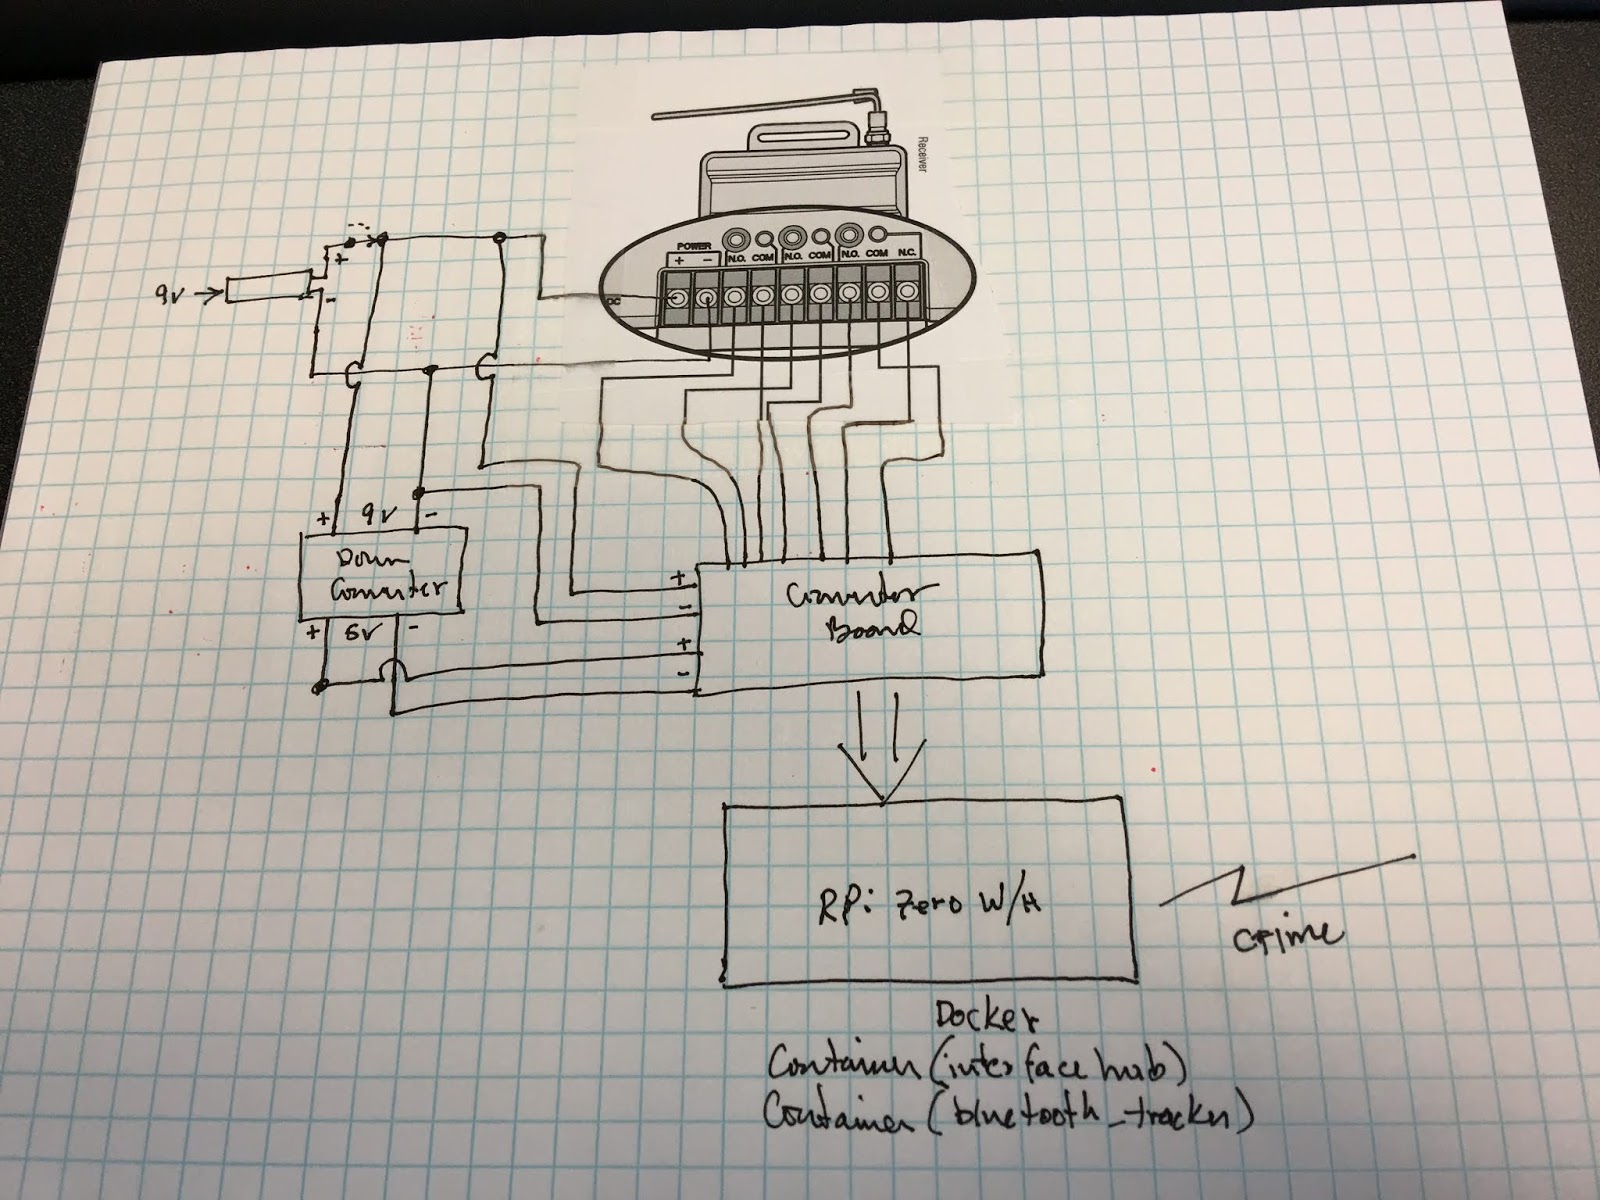 Receiver
POWER
+ − N.O. COM N.O. COM N.O. COM N.C.
DC
+
9V →
-
+ 9V -
Down
Converter
+ 5V -
+
-
+
-
Converter
Board
RPi Zero W/H
Docker
Container (interface hub)
Container (bluetooth_tracker)